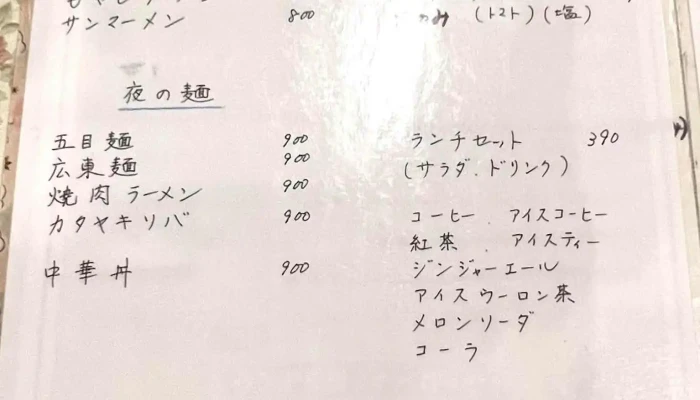 サンマーメン 800
(トマト)(塩)
夜の麺
五目麺 900
広東麺 900
焼肉ラーメン 900
カタヤキソバ 900
中華丼 900
ランチセット 390
(サラダ.ドリンク)
コーヒー . アイスコーヒー
紅茶 . アイスティー
ジンジャーエール
アイスウーロン茶
メロンソーダ
コーラ